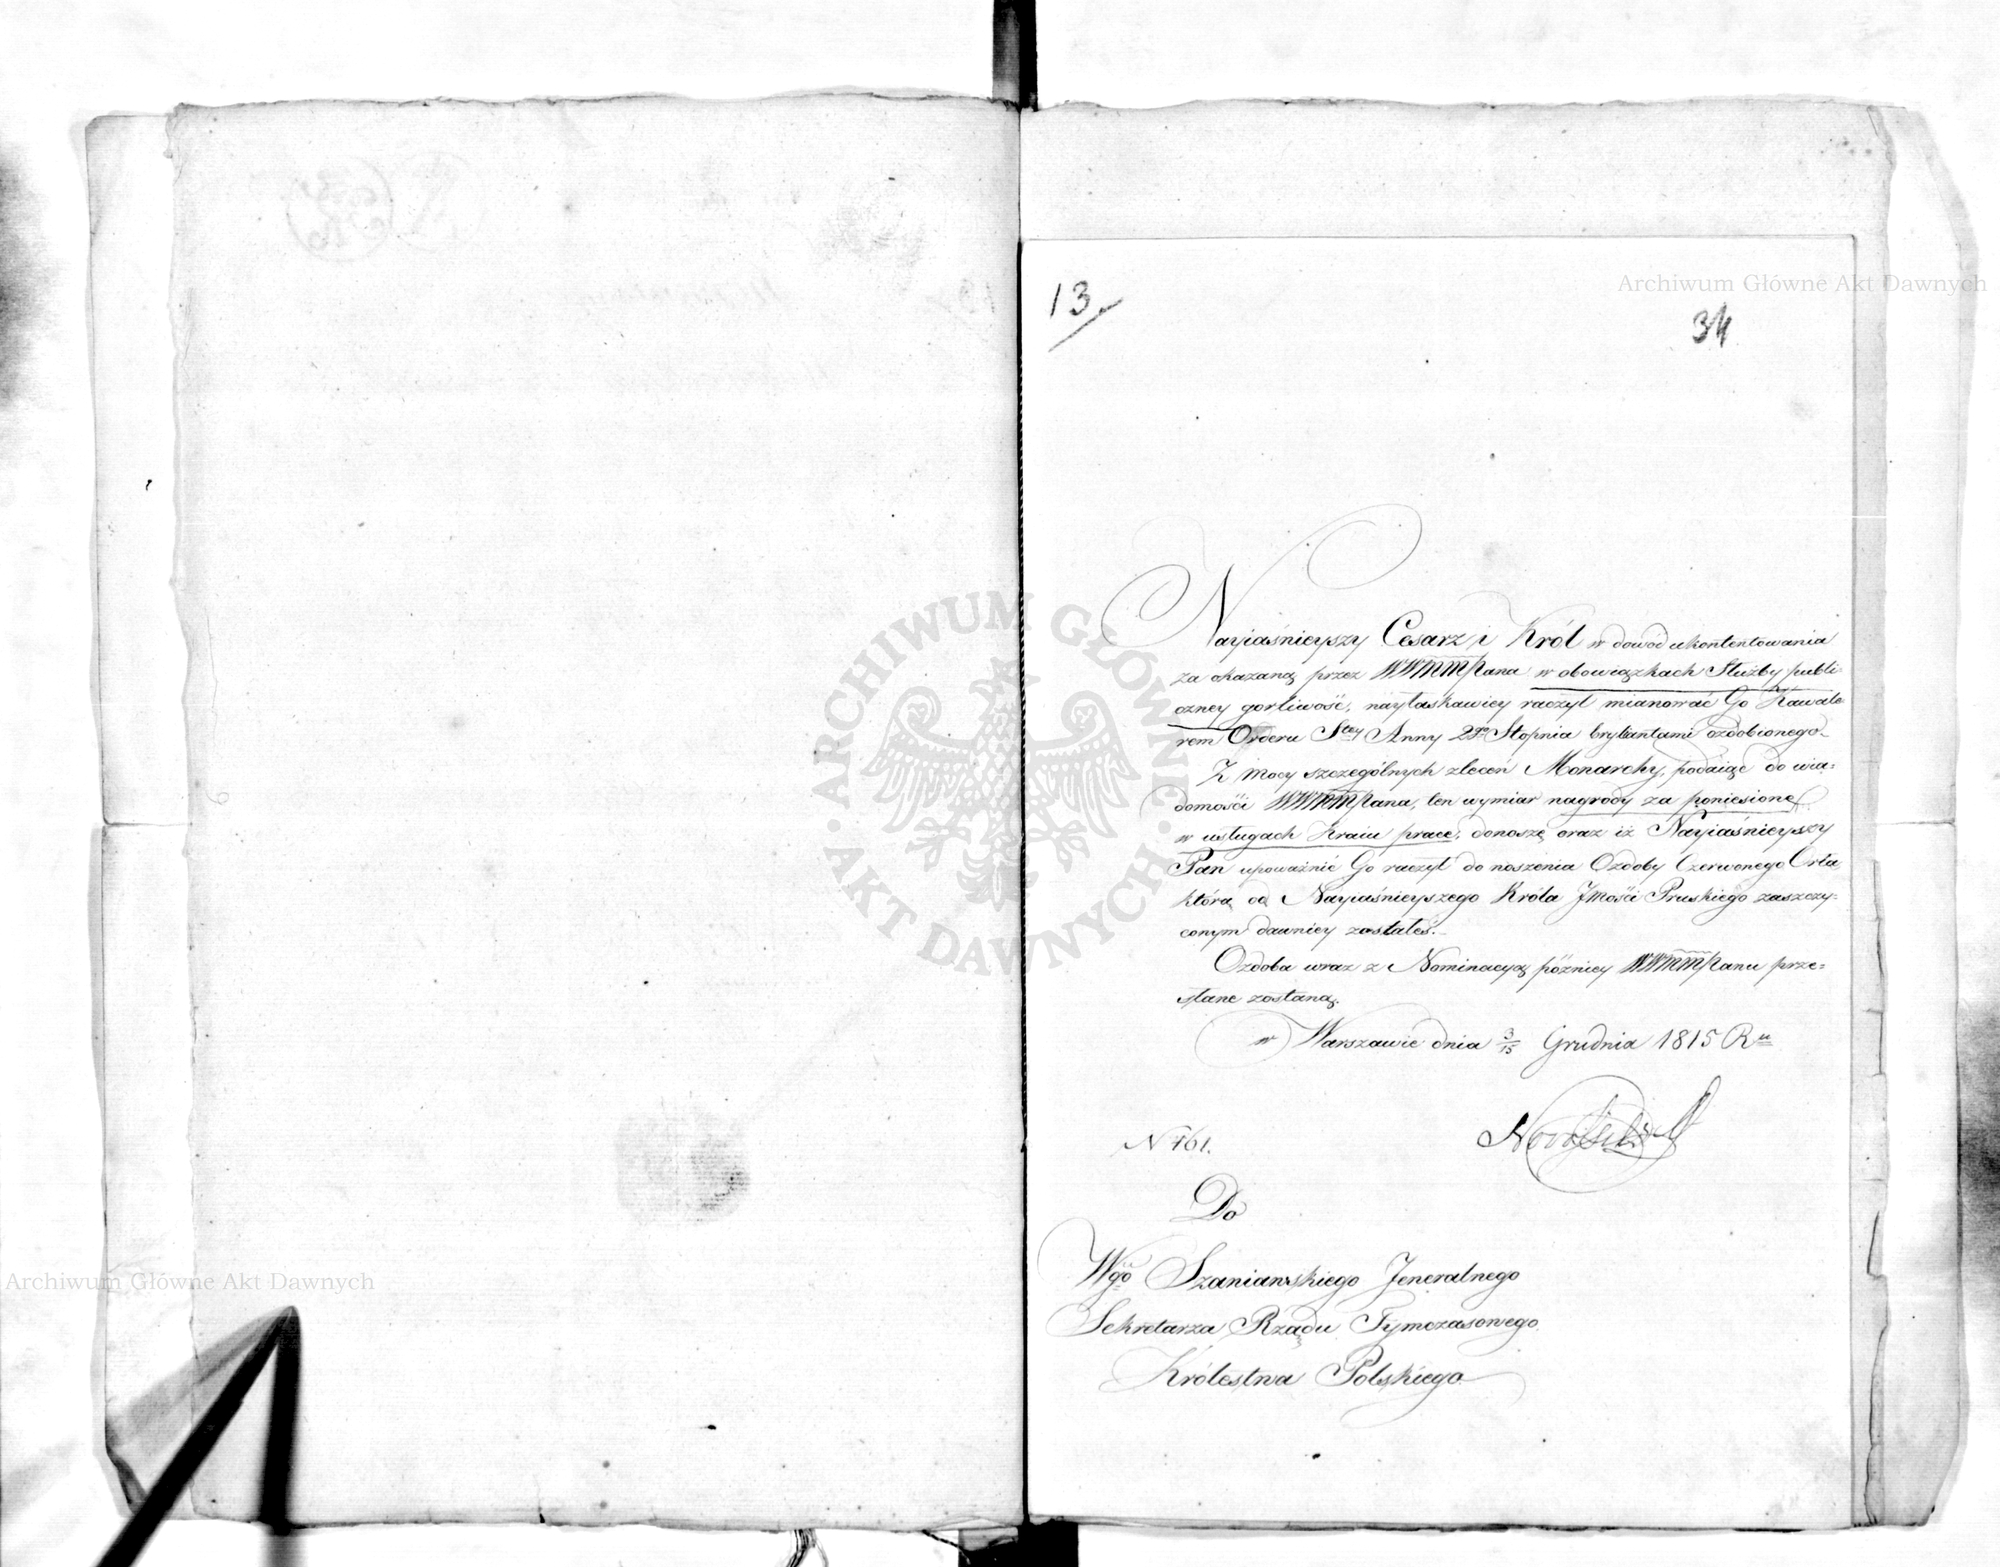 13.
34
Nayiaśnieyszy Cesarz i Król w dowód ukontentowania
za okazaną przez WWMMPana w obowiązkach Służby publi=
czney gorliwość, nayłaskawiey raczył mianować Go Kawale
rem Orderu Stey Anny 2go Stopnia brylantami ozdobionego.
Z mocy szczególnych zleceń Monarchy, podaiąc do wia=
domości WWMMPana, ten wymiar nagrody za poniesione
w usługach Kraiu prace, donoszę oraz iż Nayiaśnieyszy
Pan upoważnić Go raczył do noszenia Ozdoby Czerwonego Orła
którą od Nayiaśnieyszego Króla Jmości Pruskiego zaszczy=
conym dawniey zostałeś.
Ozdoba wraz z Nominacyą późniey WWMMPanu prze=
słane zostaną.
w Warszawie dnia 3/15 Grudnia 1815 Ru
N 161.
Do
Wgo Szaniawskiego Jeneralnego
Sekretarza Rządu Tymczasowego
Królestwa Polskiego
Archiwum Główne Akt Dawnych
Archiwum Główne Akt Dawnych
ARCHIWUM GŁÓWNE AKT DAWNYCH